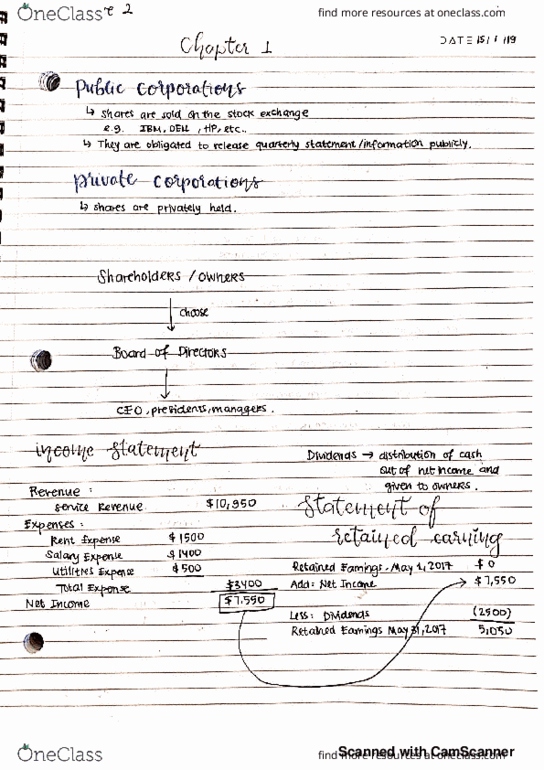 OneClass
e 2
find more resources at oneclass.com
Chapter 1
DATE 15/1/19
Public Corporations
↳ shares are sold on the stock exchange
e.g. IBM, DELL, HP, etc..
↳ They are obligated to release quarterly statement/information publicly.
private corporations
↳ shares are privately held.
Shareholders / owners
choose
Board of Directors
CEO, presidents, managers.
income statement
Dividends → distribution of cash
out of net income and
given to owners.
Revenue :
Service Revenue $10,950
Expenses :
Rent Expense $1500
Salary Expense $1400
Utilities Expense $500
Total Expense $3400
Net Income $7,550
Statement of
retained earning
Retained Earnings - May 1, 2017 $0
Add: Net Income $7,550
Less: Dividends (2500)
Retained Earnings May 31, 2017 5,050
OneClass
find more resources at oneclass.com
Scanned with CamScanner